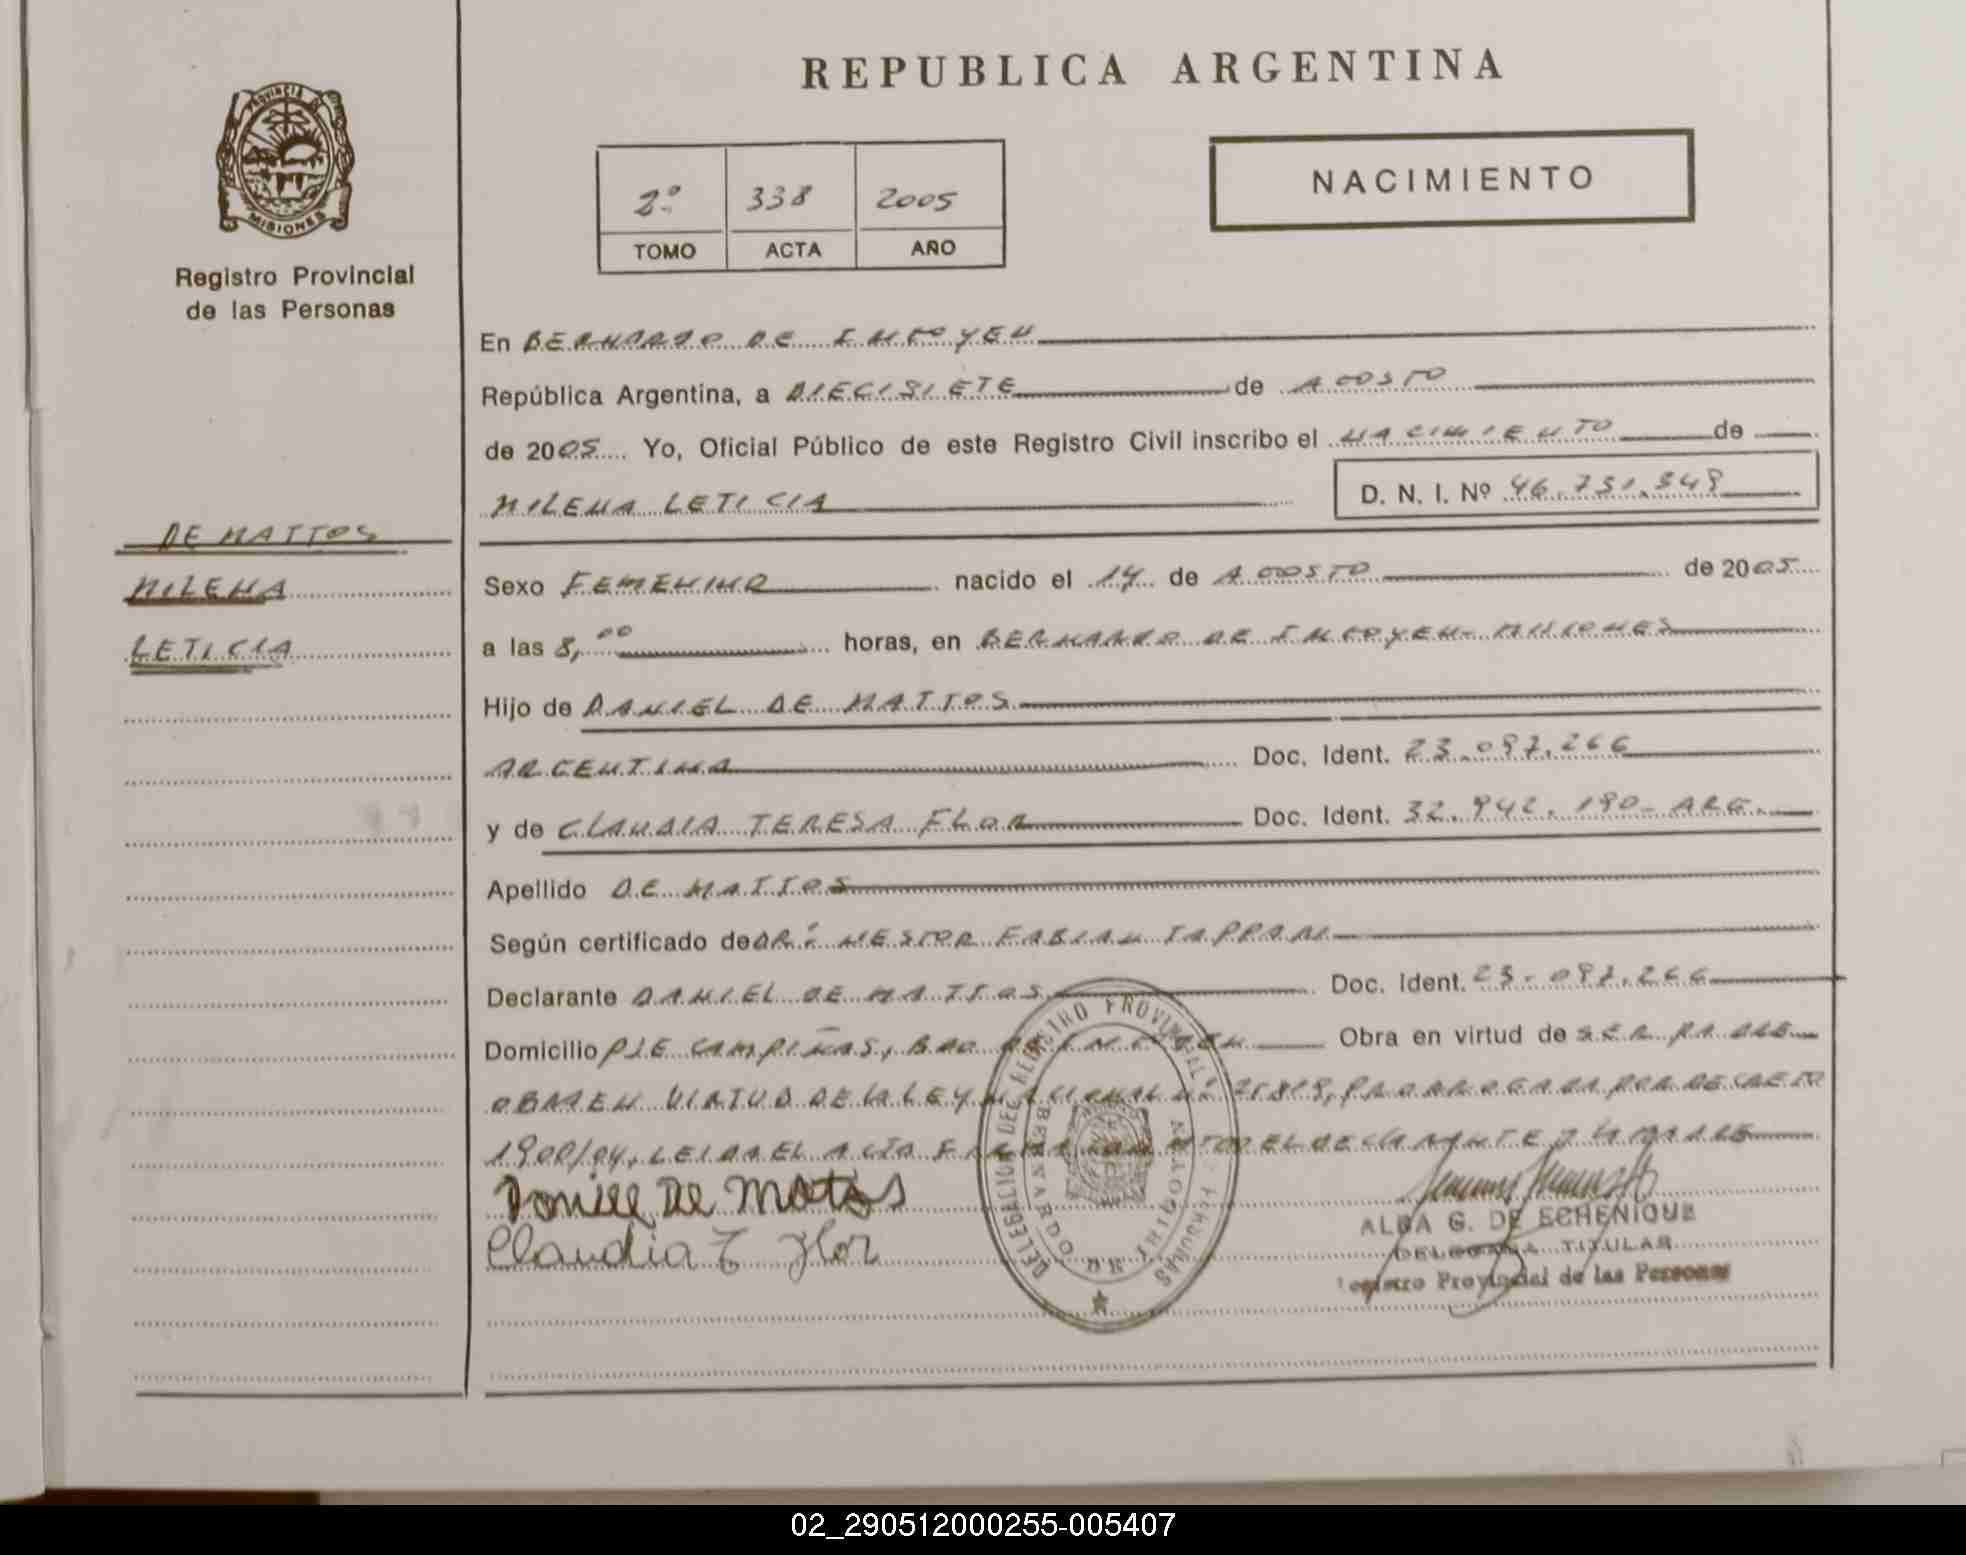 REPUBLICA ARGENTINA
PROVINCIA DE
MISIONES
Registro Provincial
de las Personas
2º 338 2005
TOMO ACTA AÑO
NACIMIENTO
En BERNARDO DE IRIGOYEN
República Argentina, a DIECISIETE de AGOSTO
de 2005 Yo, Oficial Público de este Registro Civil inscribo el NACIMIENTO de
MILENA LETICIA D. N. I. Nº 46.731.349
DE MATTOS
MILENA
LETICIA
Sexo FEMENINO nacido el 14 de AGOSTO de 2005
a las 8,00 horas, en BERNARDO DE IRIGOYEN - MISIONES
Hijo de DANIEL DE MATTOS
ARGENTINA Doc. Ident. 23.097.266
y de CLAUDIA TERESA FLOR Doc. Ident. 32.942.190 - ARG.
Apellido DE MATTOS
Según certificado de DR: NESTOR FABIAN
Declarante DANIEL DE MATTOS Doc. Ident. 23.097.266
Domicilio PJE CAMPIÑAS, BDO DE IRIGOYEN Obra en virtud de SER PADRE
OBRA EN VIRTUD DE LA LEY NACIONAL Nº 25819, PRORROGADA POR DECRETO
1900/04, LEIDA EL ACTA FIRMAN EL DECLARANTE Y LA MADRE
Daniel De Mattos
Claudia T Flor
DELEGACION DEL REGISTRO PROVINCIAL PERSONAS
BERNARDO DE IRIGOYEN
ALBA G. DE ECHENIQUE
DELEGADA TITULAR
Registro Provincial de las Personas
02_290512000255-005407